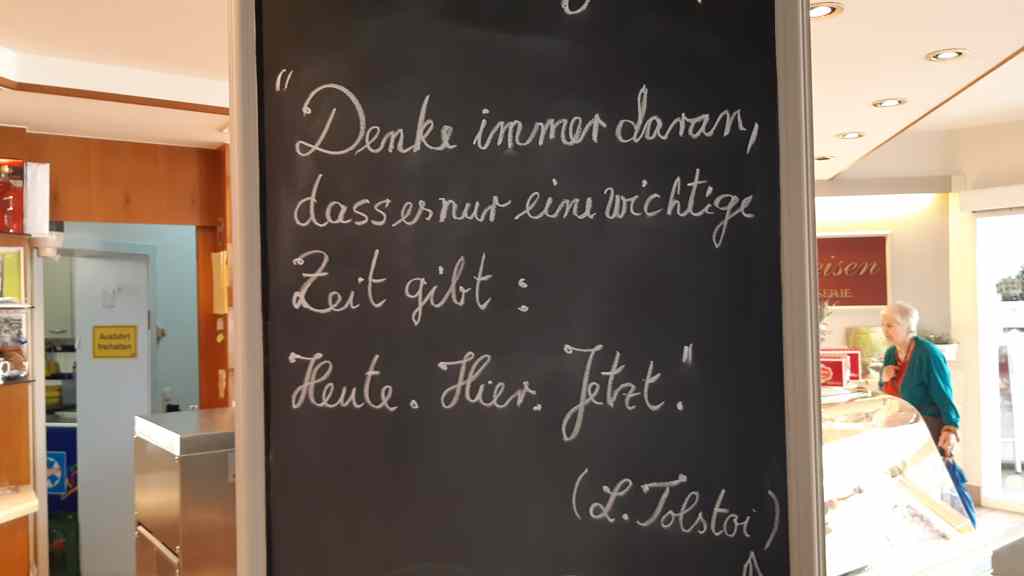 "Denke immer daran,
dass es nur eine wichtige
Zeit gibt :
Heute. Hier. Jetzt."
(L. Tolstoi)
Ausfahrt
freihalten
eisen
SERIE